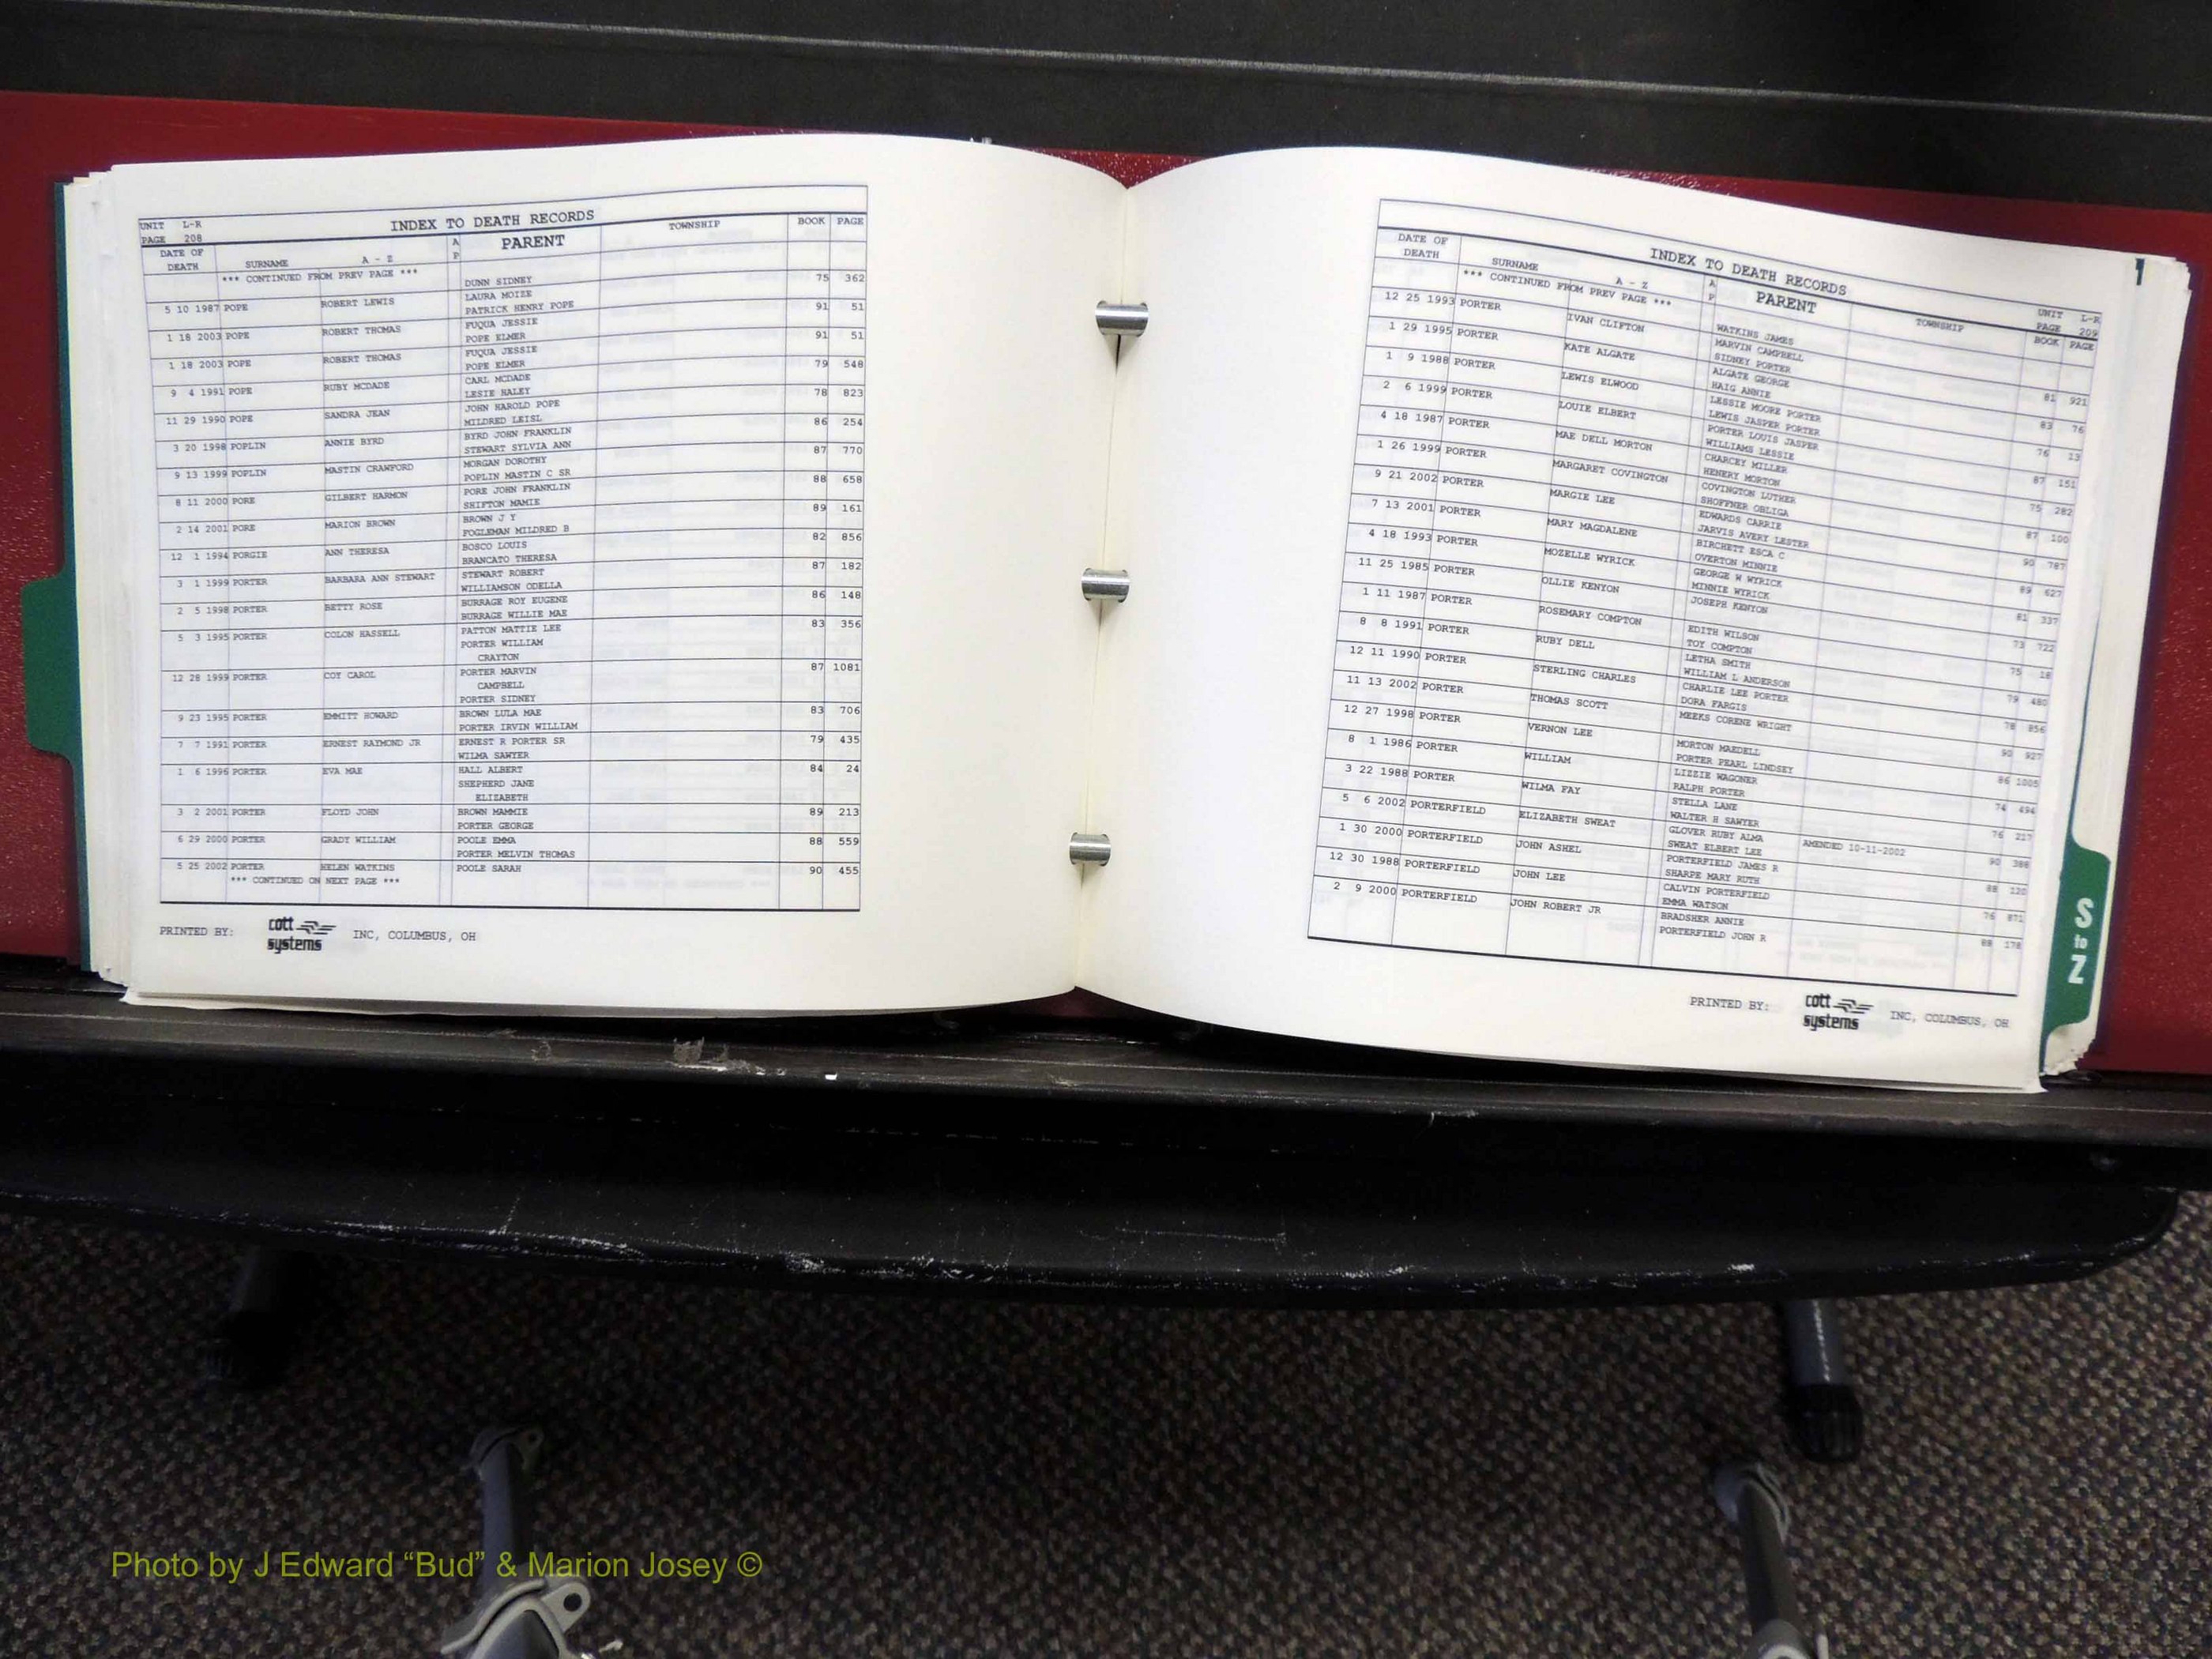 UNIT L-R
PAGE 208
INDEX TO DEATH RECORDS
DATE OF DEATH SURNAME A - Z A P PARENT TOWNSHIP BOOK PAGE
*** CONTINUED FROM PREV PAGE *** DUNN SIDNEY
5 10 1987 POPE ROBERT LEWIS LAURA MOIZE 75 362
PATRICK HENRY POPE
1 18 2003 POPE ROBERT THOMAS FUQUA JESSIE 91 51
POPE ELMER
1 18 2003 POPE ROBERT THOMAS FUQUA JESSIE 91 51
POPE ELMER
9 4 1991 POPE RUBY MCDADE CARL MCDADE 79 548
LESIE HALEY
11 29 1990 POPE SANDRA JEAN JOHN HAROLD POPE 78 823
MILDRED LEISL
3 20 1998 POPLIN ANNIE BYRD BYRD JOHN FRANKLIN 86 254
STEWART SYLVIA ANN
9 13 1999 POPLIN MASTIN CRAWFORD MORGAN DOROTHY 87 770
POPLIN MASTIN C SR
8 11 2000 PORE GILBERT HARMON PORE JOHN FRANKLIN 88 658
SHIFTON MAMIE
2 14 2001 PORE MARION BROWN BROWN J Y 89 161
FOGLEMAN MILDRED B
12 1 1994 PORGIE ANN THERESA BOSCO LOUIS 82 856
BRANCATO THERESA
3 1 1999 PORTER BARBARA ANN STEWART STEWART ROBERT 87 182
WILLIAMSON ODELLA
2 5 1998 PORTER BETTY ROSE BURRAGE ROY EUGENE 86 148
BURRAGE WILLIE MAE
5 3 1995 PORTER COLON HASSELL PATTON MATTIE LEE 83 356
PORTER WILLIAM
CRAYTON
12 28 1999 PORTER COY CAROL PORTER MARVIN 87 1081
CAMPBELL
PORTER SIDNEY
9 23 1995 PORTER EMMITT HOWARD BROWN LULA MAE 83 706
PORTER IRVIN WILLIAM
7 7 1991 PORTER ERNEST RAYMOND JR ERNEST R PORTER SR 79 435
WILMA SAWYER
1 6 1996 PORTER EVA MAE HALL ALBERT 84 24
SHEPHERD JANE
ELIZABETH
3 2 2001 PORTER FLOYD JOHN BROWN MAMMIE 89 213
PORTER GEORGE
6 29 2000 PORTER GRADY WILLIAM POOLE EMMA 88 559
PORTER MELVIN THOMAS
5 25 2002 PORTER HELEN WATKINS POOLE SARAH 90 455
*** CONTINUED ON NEXT PAGE ***
PRINTED BY: cott systems INC, COLUMBUS, OH
INDEX TO DEATH RECORDS
UNIT L-R
PAGE 209
DATE OF DEATH SURNAME A - Z A P PARENT TOWNSHIP BOOK PAGE
*** CONTINUED FROM PREV PAGE *** WATKINS JAMES
12 25 1993 PORTER IVAN CLIFTON MARVIN CAMPBELL 81 921
SIDNEY PORTER
1 29 1995 PORTER KATE ALGATE ALGATE GEORGE 83 76
HAIG ANNIE
1 9 1988 PORTER LEWIS ELWOOD LESSIE MOORE PORTER 76 13
LEWIS JASPER PORTER
2 6 1999 PORTER LOUIE ELBERT PORTER LOUIS JASPER 87 151
WILLIAMS LESSIE
4 18 1987 PORTER MAE DELL MORTON CHARCEY MILLER 75 282
HENERY MORTON
1 26 1999 PORTER MARGARET COVINGTON COVINGTON LUTHER 87 100
SHOFFNER OBLIGA
9 21 2002 PORTER MARGIE LEE EDWARDS CARRIE 90 787
JARVIS AVERY LESTER
7 13 2001 PORTER MARY MAGDALENE BIRCHETT ESCA C 89 627
OVERTON MINNIE
4 18 1993 PORTER MOZELLE WYRICK GEORGE W WYRICK 81 337
MINNIE WYRICK
11 25 1985 PORTER OLLIE KENYON JOSEPH KENYON 73 722
1 11 1987 PORTER ROSEMARY COMPTON EDITH WILSON 75 18
TOY COMPTON
8 8 1991 PORTER RUBY DELL LETHA SMITH 79 480
WILLIAM L ANDERSON
12 11 1990 PORTER STERLING CHARLES CHARLIE LEE PORTER 78 856
DORA FARGIS
11 13 2002 PORTER THOMAS SCOTT MEEKS CORENE WRIGHT 90 927
12 27 1998 PORTER VERNON LEE MORTON MAEDELL 86 1005
PORTER PEARL LINDSEY
8 1 1986 PORTER WILLIAM LIZZIE WAGONER 74 494
RALPH PORTER
3 22 1988 PORTER WILMA FAY STELLA LANE 76 217
WALTER H SAWYER
5 6 2002 PORTERFIELD ELIZABETH SWEAT GLOVER RUBY ALMA AMENDED 10-11-2002 90 388
SWEAT ELBERT LEE
1 30 2000 PORTERFIELD JOHN ASHEL PORTERFIELD JAMES R 88 120
SHARPE MARY RUTH
12 30 1988 PORTERFIELD JOHN LEE CALVIN PORTERFIELD 76 871
EMMA WATSON
2 9 2000 PORTERFIELD JOHN ROBERT JR BRADSHER ANNIE 88 178
PORTERFIELD JOHN R
PRINTED BY: cott systems INC, COLUMBUS, OH
S to Z
Photo by J Edward “Bud” & Marion Josey ©